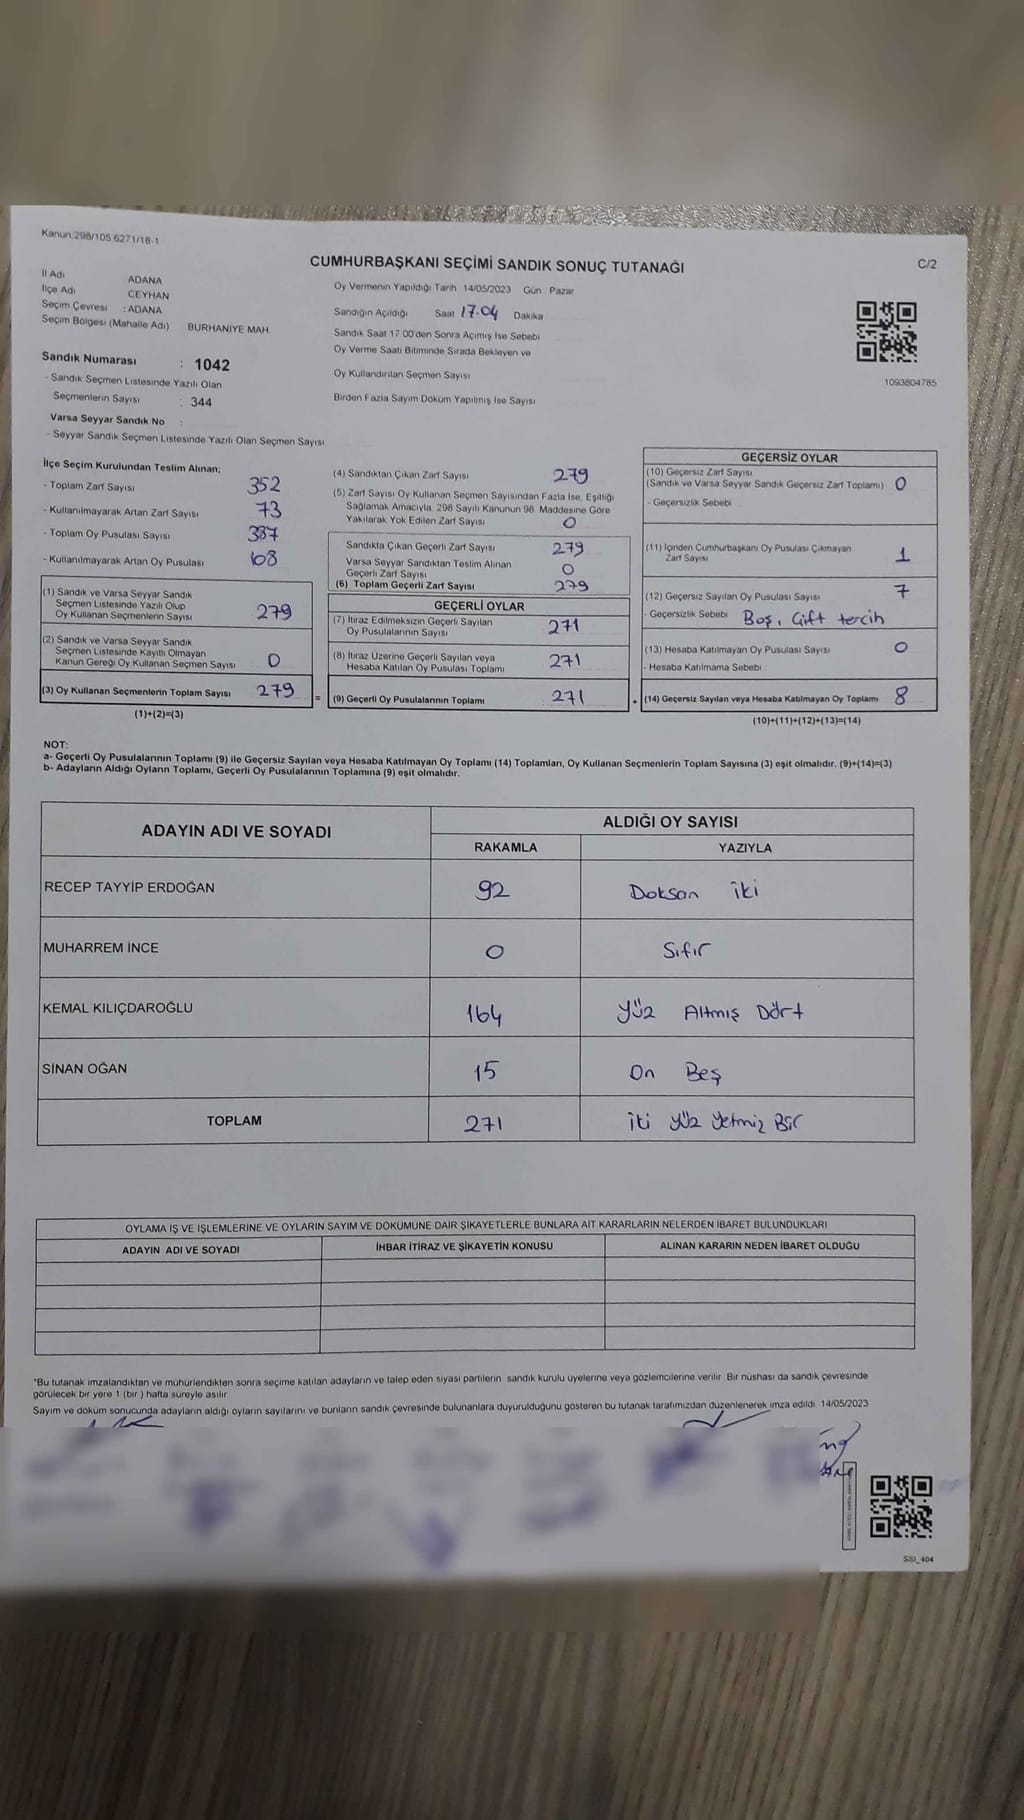 Kanun:298/105,6271/18-1
C/2
CUMHURBAŞKANI SEÇİMİ SANDIK SONUÇ TUTANAĞI
İl Adı ADANA
İlçe Adı CEYHAN
Seçim Çevresi : ADANA
Seçim Bölgesi (Mahalle Adı) BURHANİYE MAH.
Sandık Numarası : 1042
- Sandık Seçmen Listesinde Yazılı Olan
Seçmenlerin Sayısı : 344
Varsa Seyyar Sandık No :
- Seyyar Sandık Seçmen Listesinde Yazılı Olan Seçmen Sayısı
Oy Vermenin Yapıldığı Tarih 14/05/2023 Gün Pazar
Sandığın Açıldığı Saat 17.04 Dakika
Sandık Saat 17:00'den Sonra Açımış İse Sebebi
Oy Verme Saati Bitiminde Sırada Bekleyen ve
Oy Kullandırılan Seçmen Sayısı
Birden Fazla Sayım Döküm Yapılmış İse Sayısı
1093804785
İlçe Seçim Kurulundan Teslim Alınan;
- Toplam Zarf Sayısı 352
- Kullanılmayarak Artan Zarf Sayısı 73
- Toplam Oy Pusulası Sayısı 387
- Kullanılmayarak Artan Oy Pusulası 108
(1) Sandık ve Varsa Seyyar Sandık
Seçmen Listesinde Yazılı Olup
Oy Kullanan Seçmenlerin Sayısı 279
(2) Sandık ve Varsa Seyyar Sandık
Seçmen Listesinde Kayıtlı Olmayan
Kanun Gereği Oy Kullanan Seçmen Sayısı 0
(3) Oy Kullanan Seçmenlerin Toplam Sayısı 279 =
(1)+(2)=(3)
(4) Sandıktan Çıkan Zarf Sayısı 279
(5) Zarf Sayısı Oy Kullanan Seçmen Sayısından Fazla İse, Eşitliği
Sağlamak Amacıyla, 298 Sayılı Kanunun 98. Maddesine Göre
Yakılarak Yok Edilen Zarf Sayısı 0
Sandıkta Çıkan Geçerli Zarf Sayısı 279
Varsa Seyyar Sandıktan Teslim Alınan
Geçerli Zarf Sayısı 0
(6) Toplam Geçerli Zarf Sayısı 279
GEÇERLİ OYLAR
(7) İtiraz Edilmeksizin Geçerli Sayılan
Oy Pusulalarının Sayısı 271
(8) İtiraz Üzerine Geçerli Sayılan veya
Hesaba Katılan Oy Pusulası Toplamı 271
(9) Geçerli Oy Pusulalarının Toplamı 271 +
GEÇERSİZ OYLAR
(10) Geçersiz Zarf Sayısı
(Sandık ve Varsa Seyyar Sandık Geçersiz Zarf Toplamı) 0
- Geçersizlik Sebebi
(11) İçinden Cumhurbaşkanı Oy Pusulası Çıkmayan
Zarf Sayısı 1
(12) Geçersiz Sayılan Oy Pusulası Sayısı 7
- Geçersizlik Sebebi Boş, Çift tercih
(13) Hesaba Katılmayan Oy Pusulası Sayısı 0
- Hesaba Katılmama Sebebi
(14) Geçersiz Sayılan veya Hesaba Katılmayan Oy Toplamı 8
(10)+(11)+(12)+(13)=(14)
NOT:
a- Geçerli Oy Pusulalarının Toplamı (9) ile Geçersiz Sayılan veya Hesaba Katılmayan Oy Toplamı (14) Toplamları, Oy Kullanan Seçmenlerin Toplam Sayısına (3) eşit olmalıdır. (9)+(14)=(3)
b- Adayların Aldığı Oyların Toplamı, Geçerli Oy Pusulalarının Toplamına (9) eşit olmalıdır.
ADAYIN ADI VE SOYADI ALDIĞI OY SAYISI
RAKAMLA YAZIYLA
RECEP TAYYİP ERDOĞAN 92 Doksan iki
MUHARREM İNCE 0 Sıfır
KEMAL KILIÇDAROĞLU 164 Yüz Altmış Dört
SİNAN OĞAN 15 On Beş
TOPLAM 271 iki yüz yetmiz Bir
OYLAMA İŞ VE İŞLEMLERİNE VE OYLARIN SAYIM VE DÖKÜMÜNE DAİR ŞİKAYETLERLE BUNLARA AİT KARARLARIN NELERDEN İBARET BULUNDUKLARI
ADAYIN ADI VE SOYADI İHBAR İTİRAZ VE ŞİKAYETİN KONUSU ALINAN KARARIN NEDEN İBARET OLDUĞU
*Bu tutanak imzalandıktan ve mühürlendikten sonra seçime katılan adayların ve talep eden siyasi partilerin sandık kurulu üyelerine veya gözlemcilerine verilir. Bir nüshası da sandık çevresinde
görülecek bir yere 1 (bir ) hafta süreyle asılır
Sayım ve döküm sonucunda adayların aldığı oyların sayılarını ve bunların sandık çevresinde bulunanlara duyurulduğunu gösteren bu tutanak tarafımızdan düzenlenerek imza edildi. 14/05/2023
SSI_404